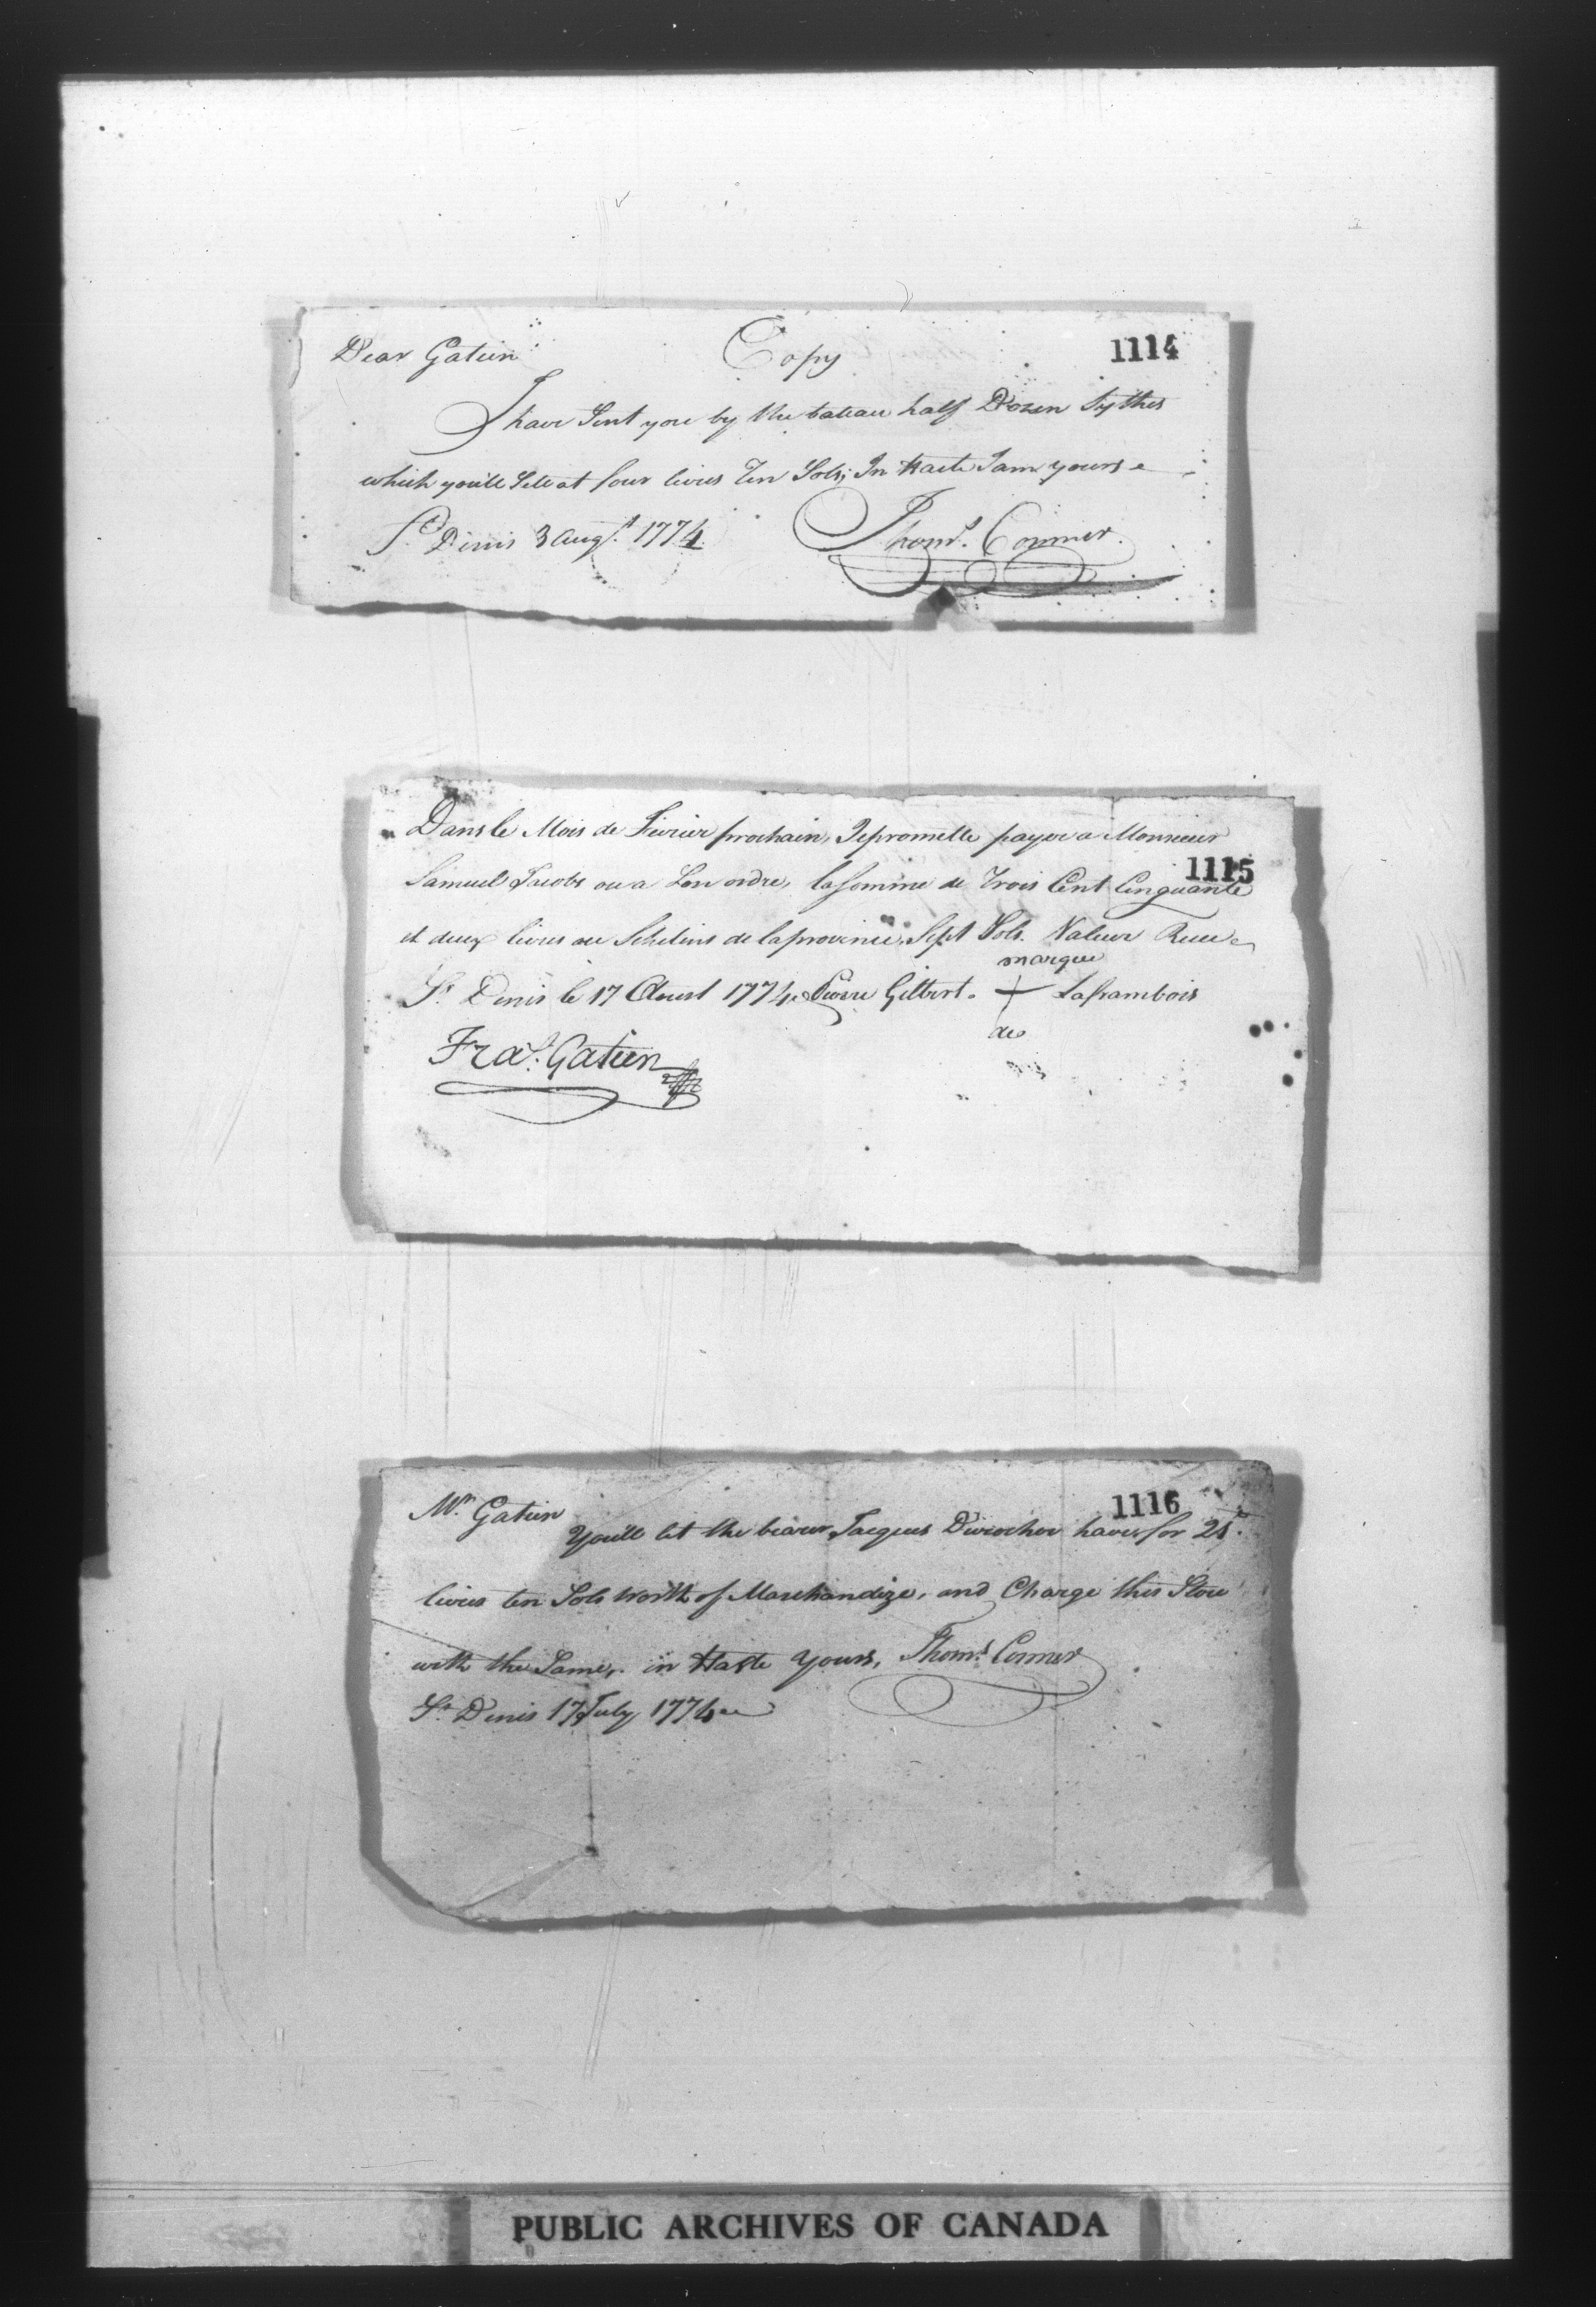 Dear Gatien Copy 1114
I have Sent you by the bateau half Dozen Sythes
which you'll Sell at four livres Ten Sols; In Haste I am yours
St Denis 3 Augst. 1774 Thoms. Conner.
Dans le Mois de Fevrier prochain, Je promette payer a Monsieur
1115
Samuel Jacobs ou a Son ordre, la somme de Trois Cent Cinquante
et deux livres ou Schelins de la province, Sept Sols. Valeur Recue
marque
St. Denis le 17 Aoust 1774. Pierre Gilbert. + Laframbois
de
Fras. Gatien
Mr. Gatien 1116
You'll let the bearer Jacques Durocher have for 21
livres ten Sols worth of Marchandize, and Charge this Store
with the Same, in Haste Yours, Thoms. Conner
St. Denis 17 July 1774
PUBLIC ARCHIVES OF CANADA